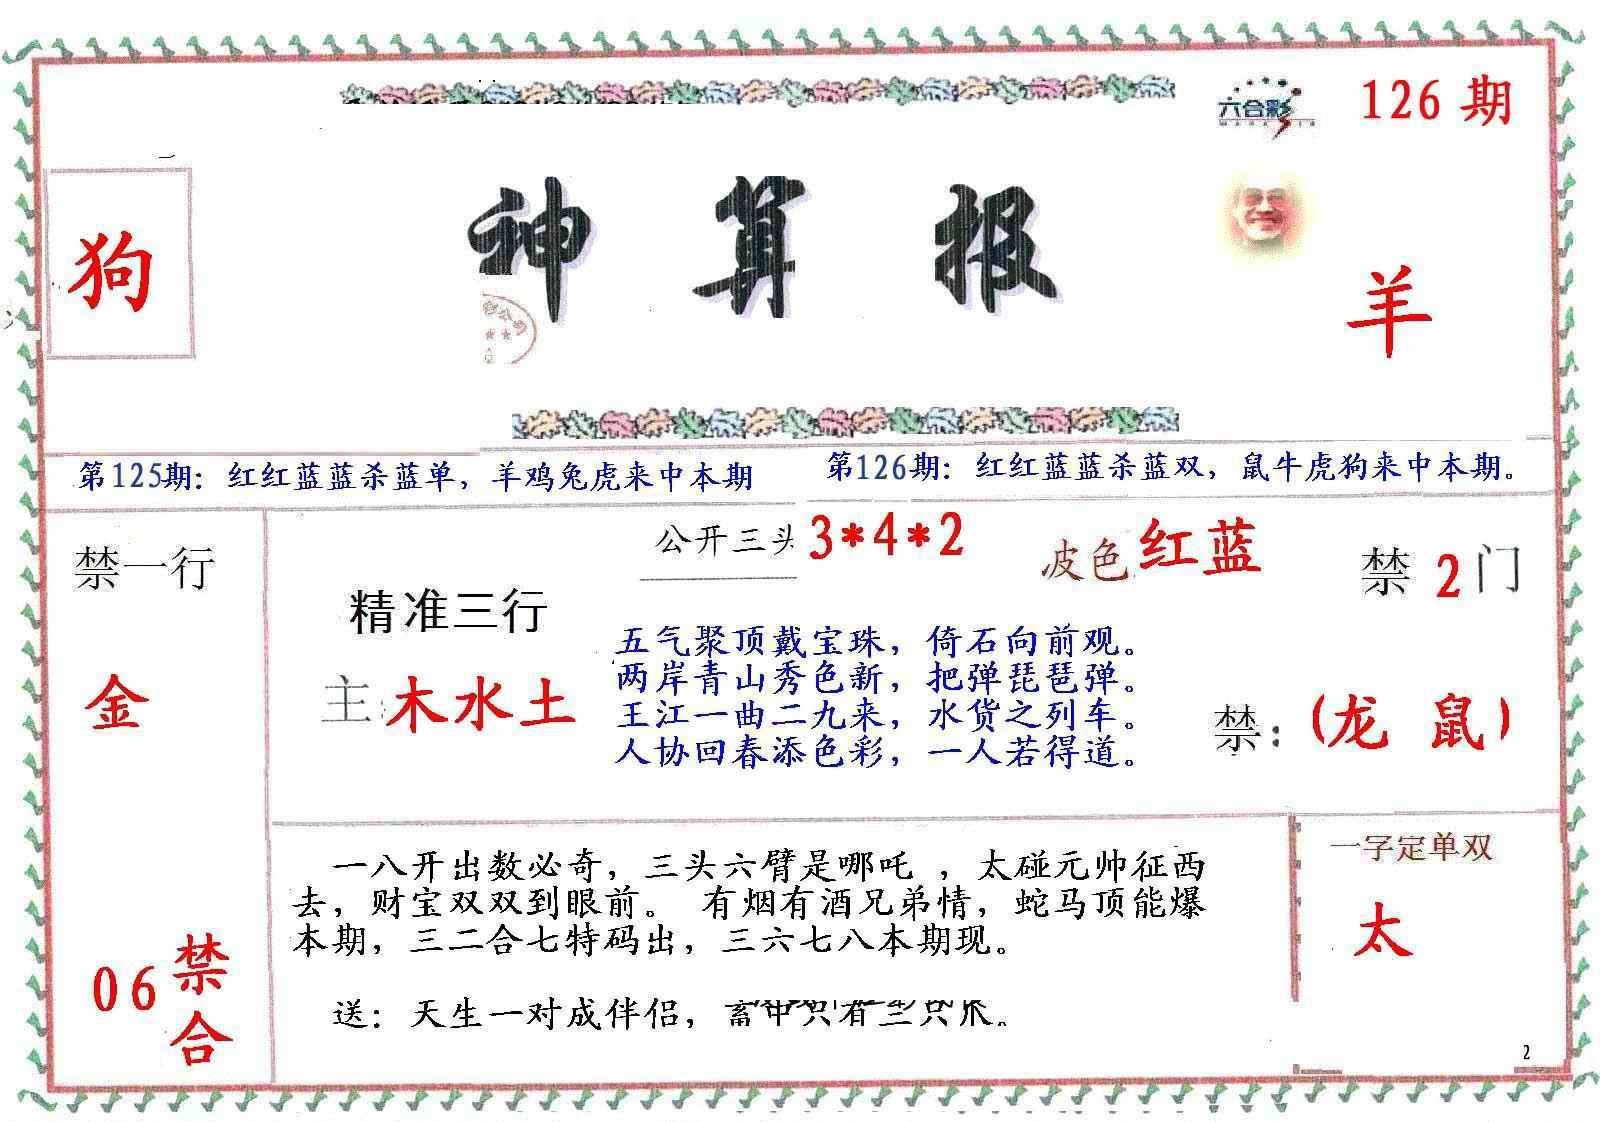 六合彩
126期
狗
神算报
羊
第125期：红红蓝蓝杀蓝单，羊鸡兔虎来中本期
第126期：红红蓝蓝杀蓝双，鼠牛虎狗来中本期。
禁一行
金
06禁合
公开三头 3*4*2
波色红蓝
禁2门
精准三行
主：木水土
五气聚顶戴宝珠，倚石向前观。
两岸青山秀色新，把弹琵琶弹。
王江一曲二九来，水货之列车。
人协回春添色彩，一人若得道。
禁：(龙 鼠)
一八开出数必奇，三头六臂是哪吒 ，太碰元帅征西
去，财宝双双到眼前。 有烟有酒兄弟情，蛇马顶能爆
本期，三二合七特码出，三六七八本期现。
送：天生一对成伴侣，畜中只有三只爪。
一字定单双
太
2